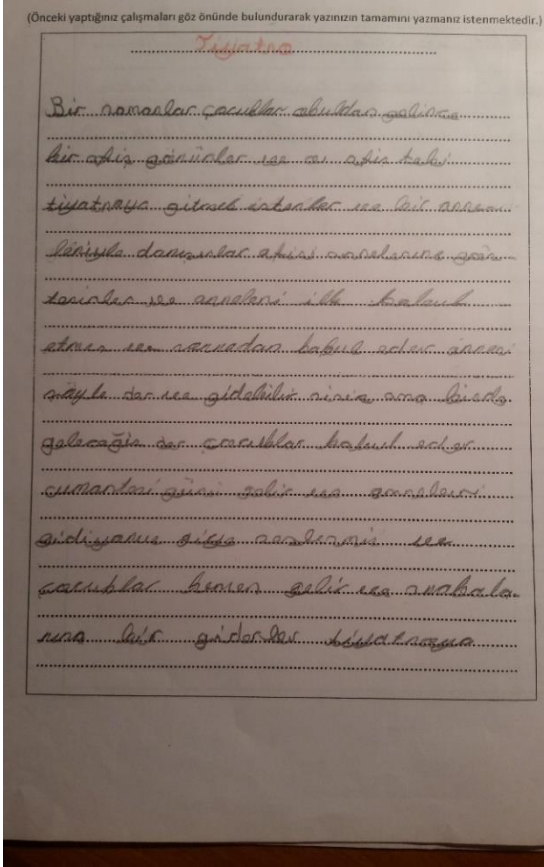 (Önceki yaptığınız çalışmaları göz önünde bulundurarak yazınızın tamamını yazmanız istenmektedir.)
Tiyatro
Bir zamanlar çocuklar okuldan gelince
bir afiş görürler ve o afiş teki
tiyatroya gitmek isterler ve bir annee
leriyle danışırlar afişi annelerine gös
terirler ve anneleri ilk kabul
etmez ve sonradan kabul eder annesi
şöyle der ve gidebilir siniz ama bizde
geleceğiz der çocuklar kabul eder
cumartesi günü gelir ve anneleri
gidiyoruz diye seslenmiş ve
çocuklar hemen gelir ve arabala
rına bir giderler tiyatroya